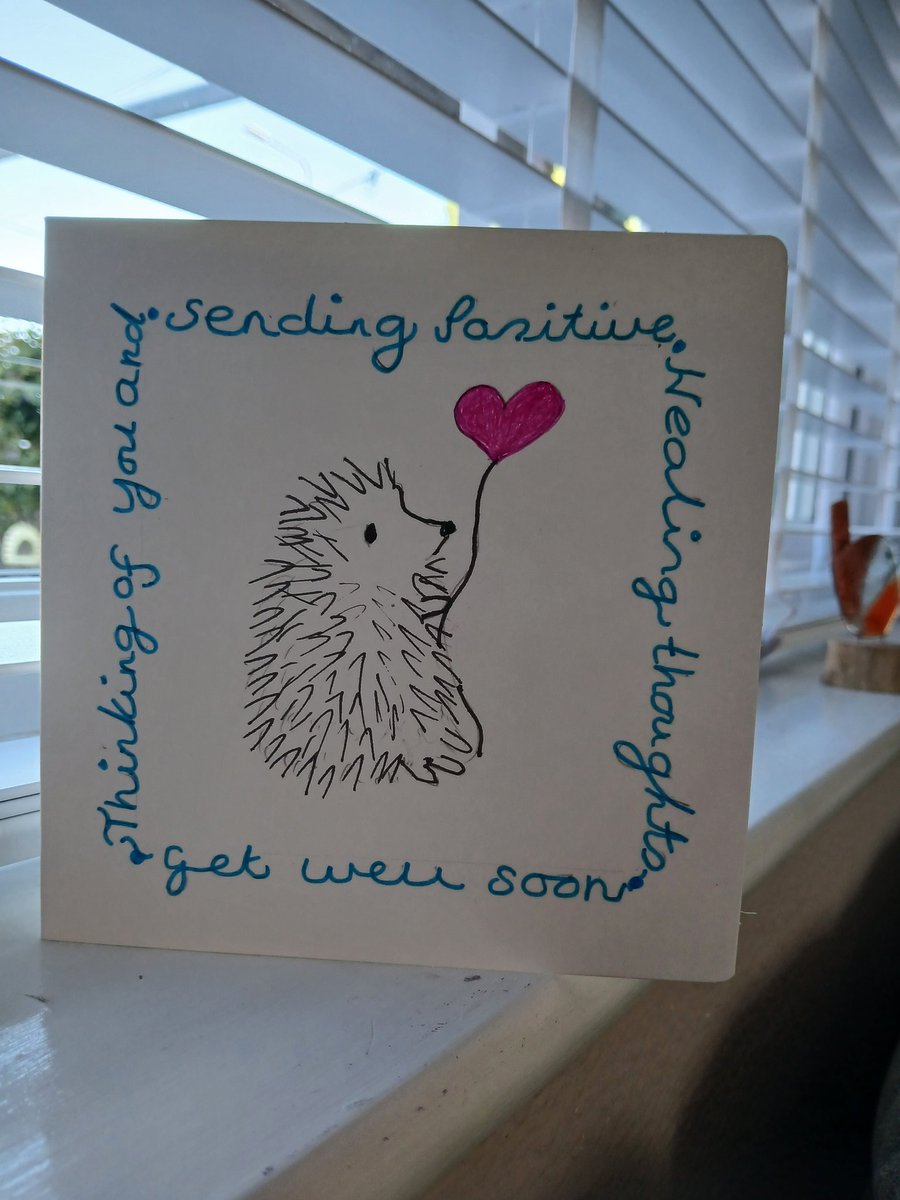 Thinking of you and
sending Positive
Healing thoughts
get well soon